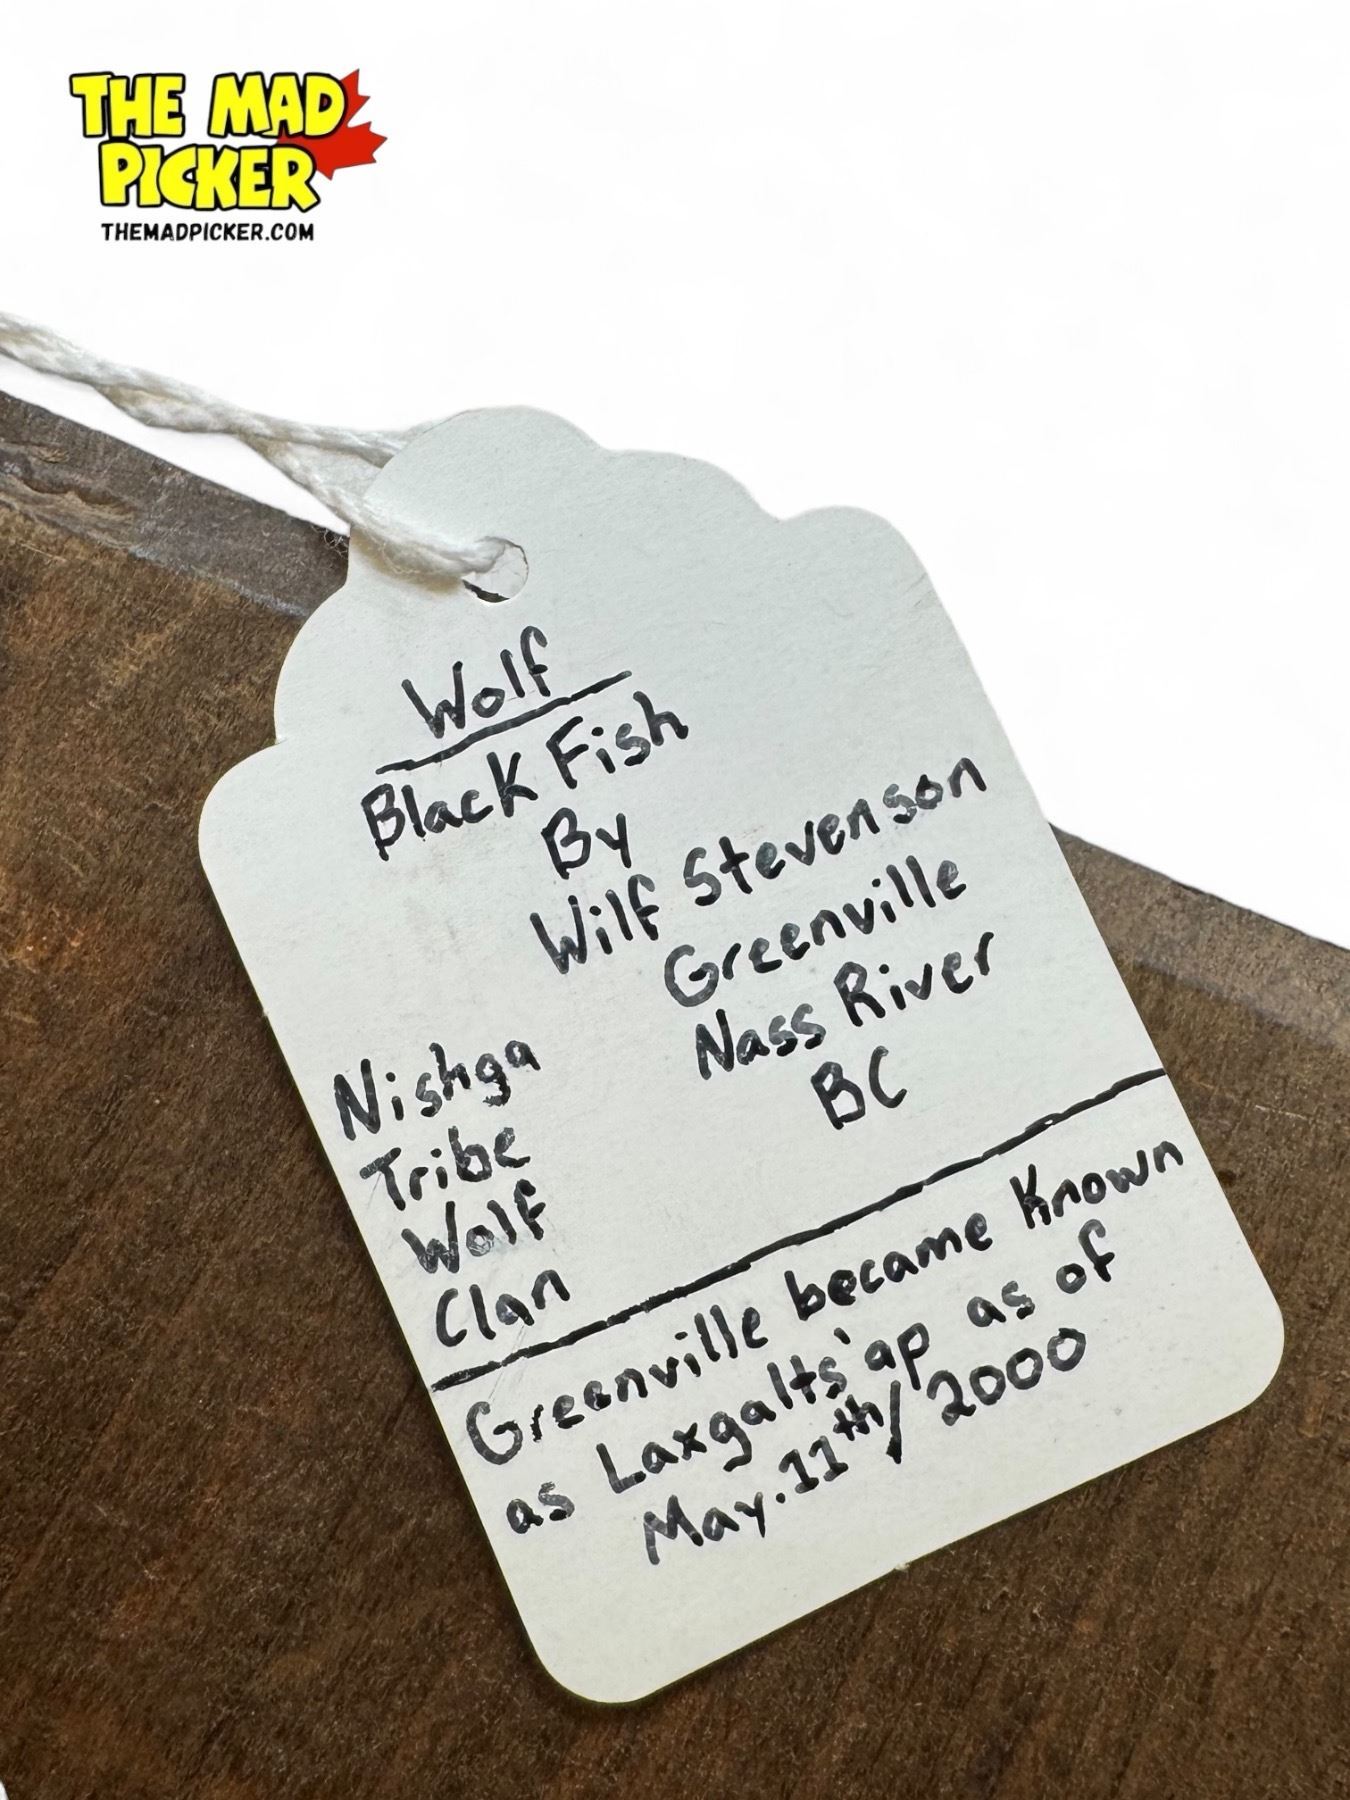 THE MAD
PICKER
THEMADPICKER.COM
Wolf
Black Fish
By
Wilf Stevenson
Greenville
Nass River
BC
Nishga
Tribe
Wolf
Clan
Greenville became Known
as Laxgalts'ap as of
May.11th/2000